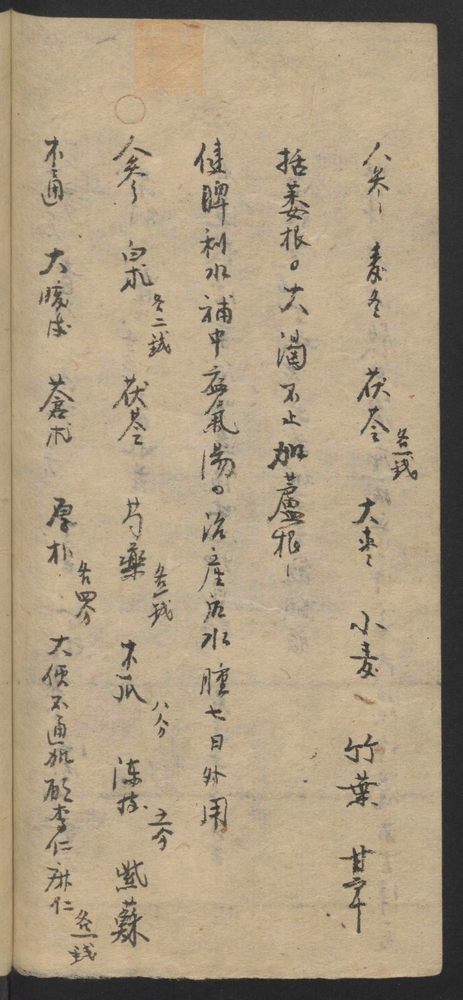 人参 麦冬 茯苓 各一錢 大枣 小麦 竹葉 甘草
括蒌根。大渴不止加蘆根
健脾利水補中益氣湯。治産后水腫七日外用
人参 白朮 各二錢 茯苓 芍藥 各一錢 木瓜 八分 陳皮 五分 紫蘇
木通 大腹皮 蒼朮 厚朴 各四分 大便不通加郁李仁麻仁 各一錢